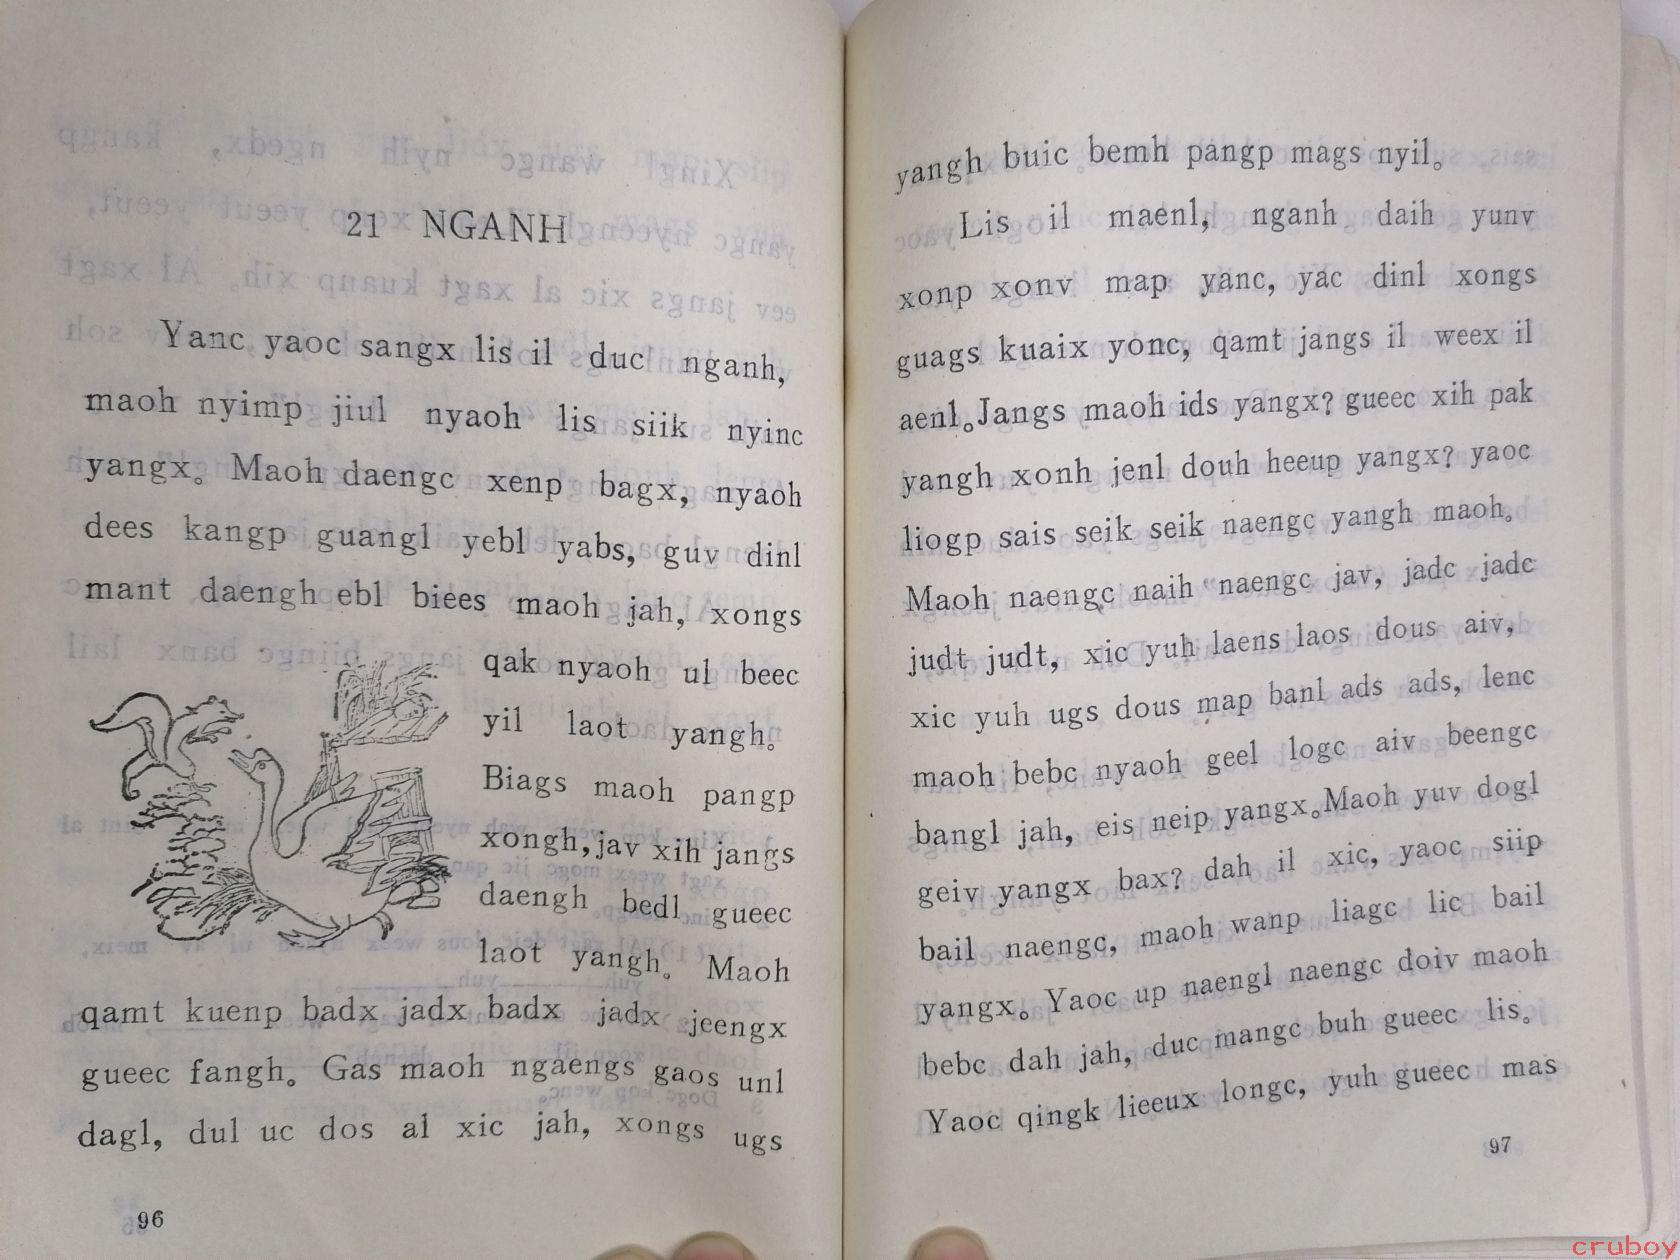 21 NGANH
Yanc yaoc sangx lis il duc nganh,
maoh nyimp jiul nyaoh lis siik nyinc
yangx。 Maoh daengc xenp bagx, nyaoh
dees kangp guangl yebl yabs, guv dinl
mant daengh ebl biees maoh jah, xongs
qak nyaoh ul beec
yil laot yangh。
Biags maoh pangp
xongh, jav xih jangs
daengh bedl gueec
laot yangh。 Maoh
qamt kuenp badx jadx badx jadx jeengx
gueec fangh。 Gas maoh ngaengs gaos unl
dagl, dul uc dos al xic jah, xongs ugs
96
yangh buic bemh pangp mags nyil。
Lis il maenl, nganh daih yunv
xonp xonv map yanc, yac dinl xongs
guags kuaix yonc, qamt jangs il weex il
aenl。Jangs maoh ids yangx? gueec xih pak
yangh xonh jenl douh heeup yangx? yaoc
liogp sais seik seik naengc yangh maoh。
Maoh naengc naih naengc jav, jadc jadc
judt judt, xic yuh laens laos dous aiv,
xic yuh ugs dous map banl ads ads, lenc
maoh bebc nyaoh geel logc aiv beengc
bangl jah, eis neip yangx。Maoh yuv dogl
geiv yangx bax? dah il xic, yaoc siip
bail naengc, maoh wanp liagc lic bail
yangx。 Yaoc up naengl naengc doiv maoh
bebc dah jah, duc mangc buh gueec lis。
Yaoc qingk lieeux longc, yuh gueec mas
97
cruboy